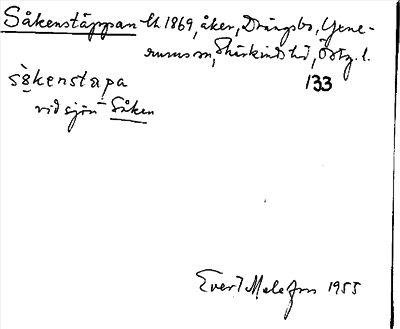 Såkenstäppan Ek 1869, åker, Drängsbo, Yxne-
rums sn, Skärkinds hd, Östg. l.
133
såkenstapa
vid sjön Såken
Evert Melefors 1955